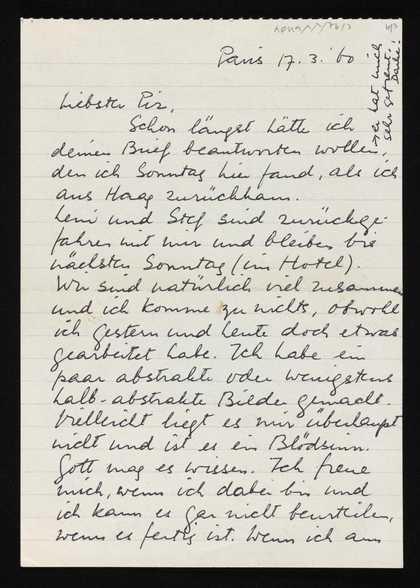 Paris 17.3.60
→ er hat mich
sehr gefreut.
Danke!
Liebster Piz,
Schon längst hätte ich
deinen Brief beantworten wollen,
den ich Sonntag hier fand, als ich
aus Haag zurückkam.
Leni und Stef sind zurückge-
fahren mit mir und bleiben bis
nächsten Sonntag (im Hotel).
Wir sind natürlich viel zusammen
und ich komme zu nichts, obwohl
ich gestern und heute doch etwas
gearbeitet habe. Ich habe ein
paar abstrakte oder wenigstens
halb-abstrakte Bilder gemacht.
Vielleicht liegt es mir überhaupt
nicht und ist es ein Blödsinn.
Gott mag es wissen. Ich freue
mich, wenn ich dabei bin und
ich kann es gar nicht beurteilen,
wenn es fertig ist. Wenn ich am